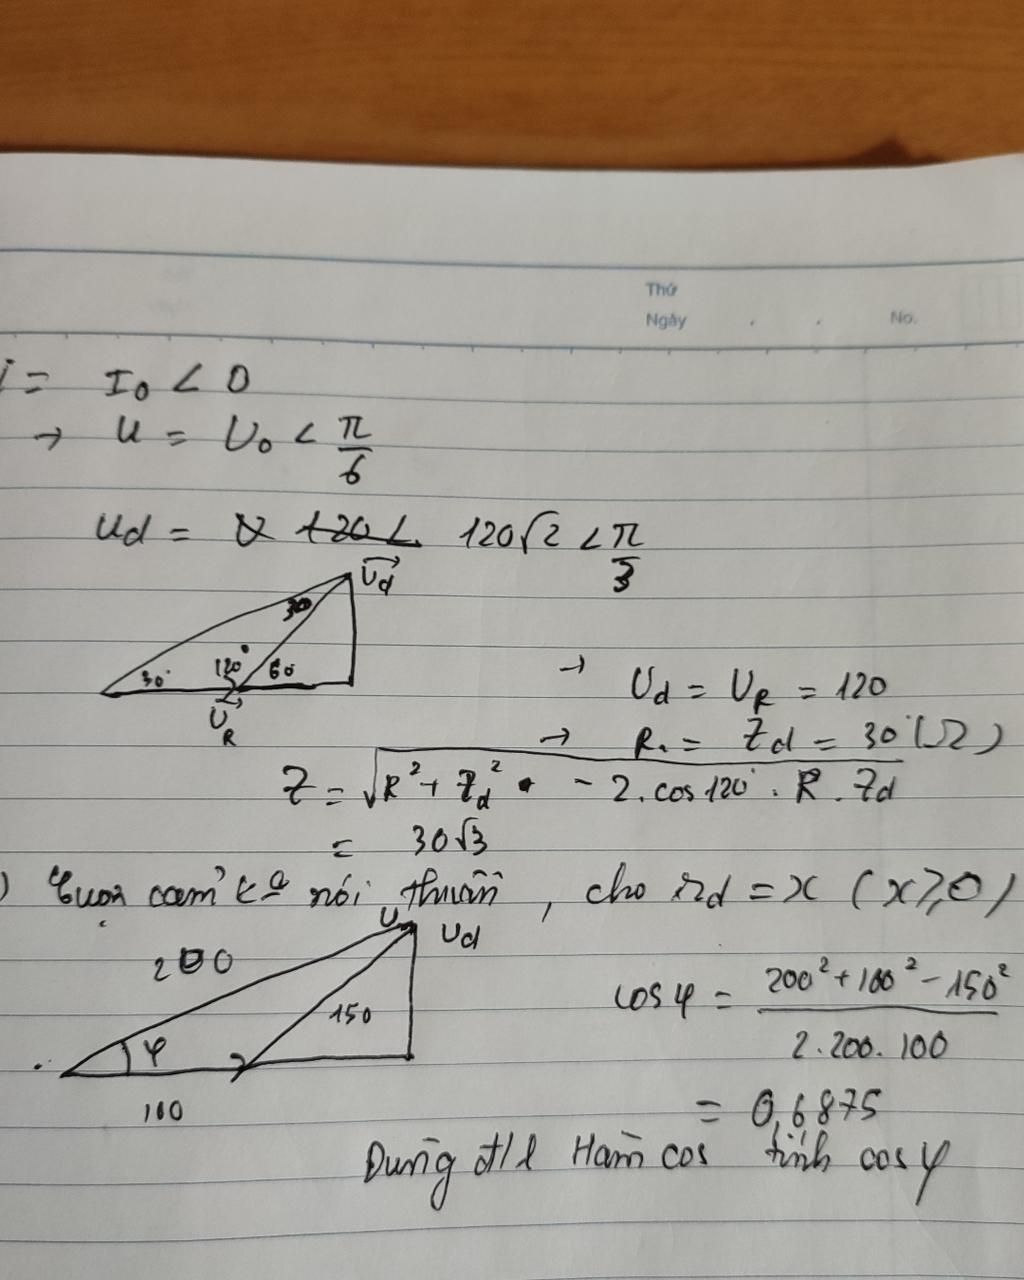 Thứ
Ngày . . No.
i = I₀ < 0
→ u = U₀ < π/6
ud = 120√2 < π/3
Ud
30
30° 120° 60
UR
→ Ud = UR = 120
→ R = Zd = 30 (Ω)
Z = √(R² + Zd² - 2.cos120° . R . Zd)
= 30√3
) cảm nói thuần, cho rd = x (x≥0)
U Ud
200
150
φ
100
cosφ = (200² + 100² - 150²)/(2.200.100)
= 0,6875
Dùng đ/l Hàm cos tính cosφ